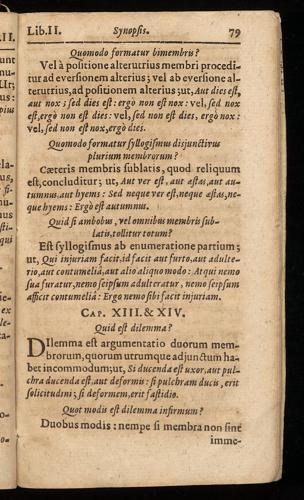 Lib.II. Synopsis. 79
Quomodo formatur bimembris?
Vel à positione alterutrius membri procedi-
tur ad eversionem alterius; vel ab eversione al-
terutrius, ad positionem alterius; ut, Aut dies est,
aut nox; sed dies est: ergò non est nox: vel, sed nox
est, ergò non est dies: vel, sed non est dies, ergò nox:
vel, sed non est nox, ergò dies.
Quomodo formatur syllogismus disjunctivus
plurium membrorum?
Cæteris membris sublatis, quod reliquum
est, concluditur; ut, Aut ver est, aut æstas, aut au-
tumnus, aut hyems: Sed neque ver est, neque æstas, ne-
que hyems: Ergò est autumnus.
Quid si ambobus, vel omnibus membris sub-
latis, tollitur totum?
Est syllogismus ab enumeratione partium;
ut, Qui injuriam facit, id facit aut furto, aut adulte-
rio, aut contumeliâ, aut alio aliquo modo: Atqui nemo
sua furatur, nemo seipsum adulteratur, nemo seipsum
afficit contumeliâ: Ergo nemo sibi facit injuriam.
CAP. XIII. & XIV.
Quid est dilemma?
DIlemma est argumentatio duorum mem-
brorum, quorum utrumque adjunctum ha-
bet incommodum; ut, Si ducenda est uxor, aut pul-
chra ducenda est, aut deformis: si pulchram ducis, erit
solicitudini; si deformem, erit fastidio.
Quot modis est dilemma infirmum?
Duobus modis: nempe si membra non sint
imme-